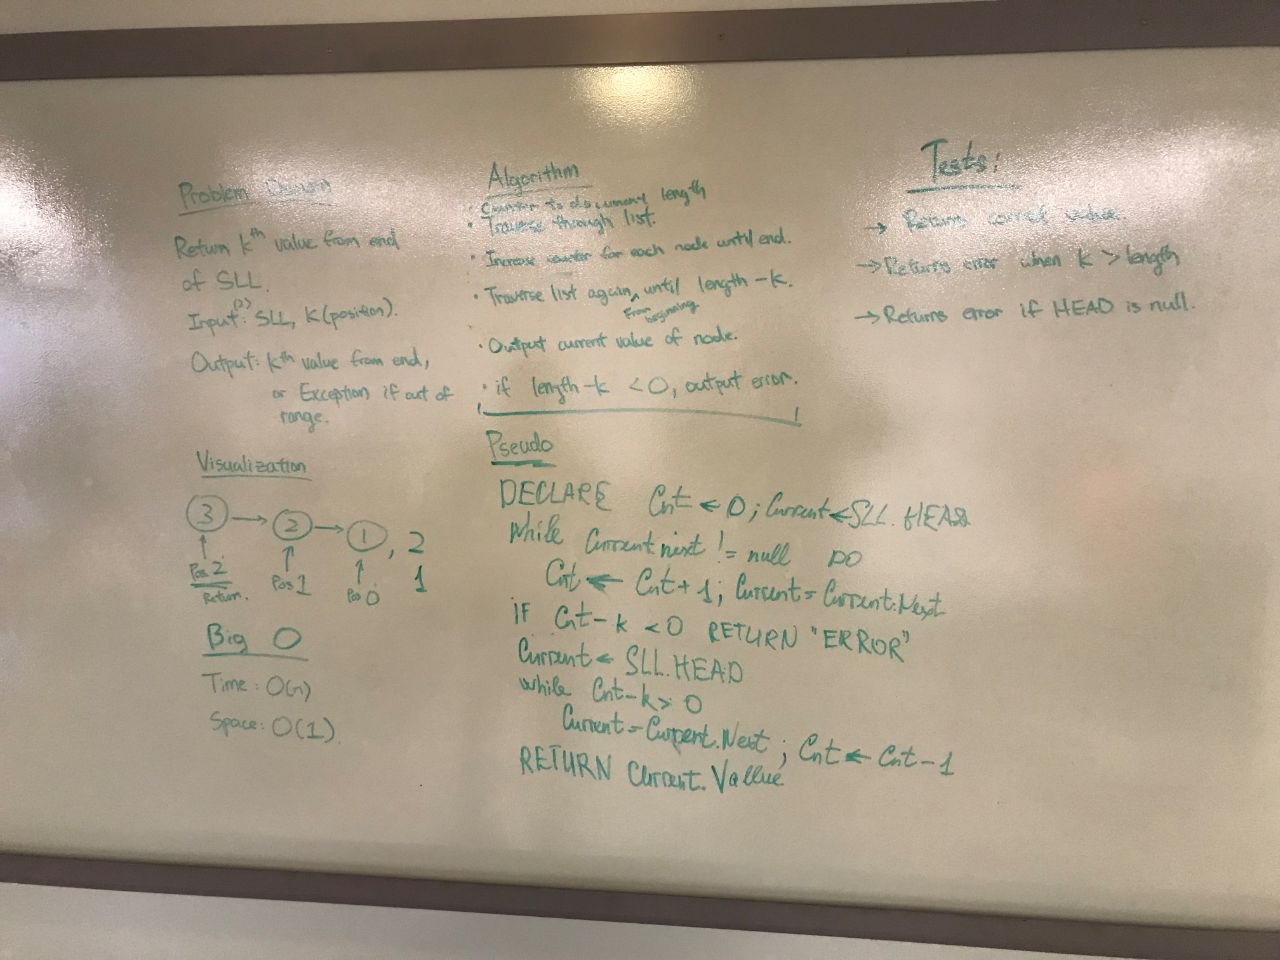 Problem Domain
Return kth value from end
of SLL.
Input: (2) SLL, K(position).
Output: kth value from end,
or Exception if out of
range.
Visualization
3 → 2 → 1 , 2
1
Pos 2
Return.
Pos 1
Pos 0
Big O
Time: O(n)
Space: O(1).
Algorithm
· Counter to document length
· Traverse through list.
· Increase counter for each node until end.
· Traverse list again, until length - k.
From beginning
· Output current value of node.
· if length - k < 0, output error.
Pseudo
DECLARE Cnt ← 0; Current ← SLL.HEAD
While Current.next != null DO
Cnt ← Cnt + 1; Current = Current.Next
IF Cnt - k < 0 RETURN "ERROR"
Current ← SLL.HEAD
While Cnt - k > 0
Current = Current.Next; Cnt ← Cnt - 1
RETURN Current.Vallue
Tests:
→ Returns correct value.
→ Returns error when k > length
→ Returns error if HEAD is null.